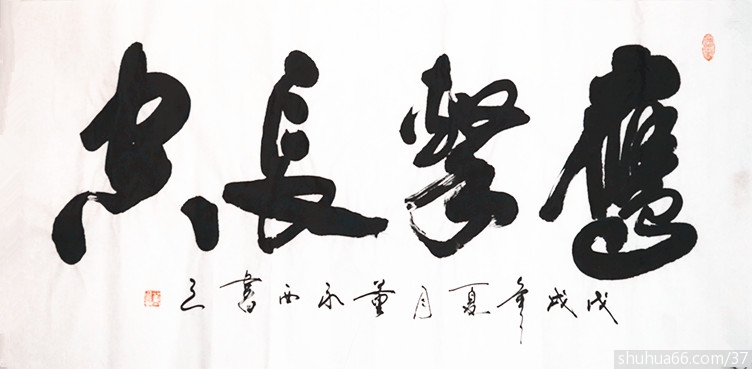 鹰击长空
戊戌年夏月董永西书
shuhua66.com/37